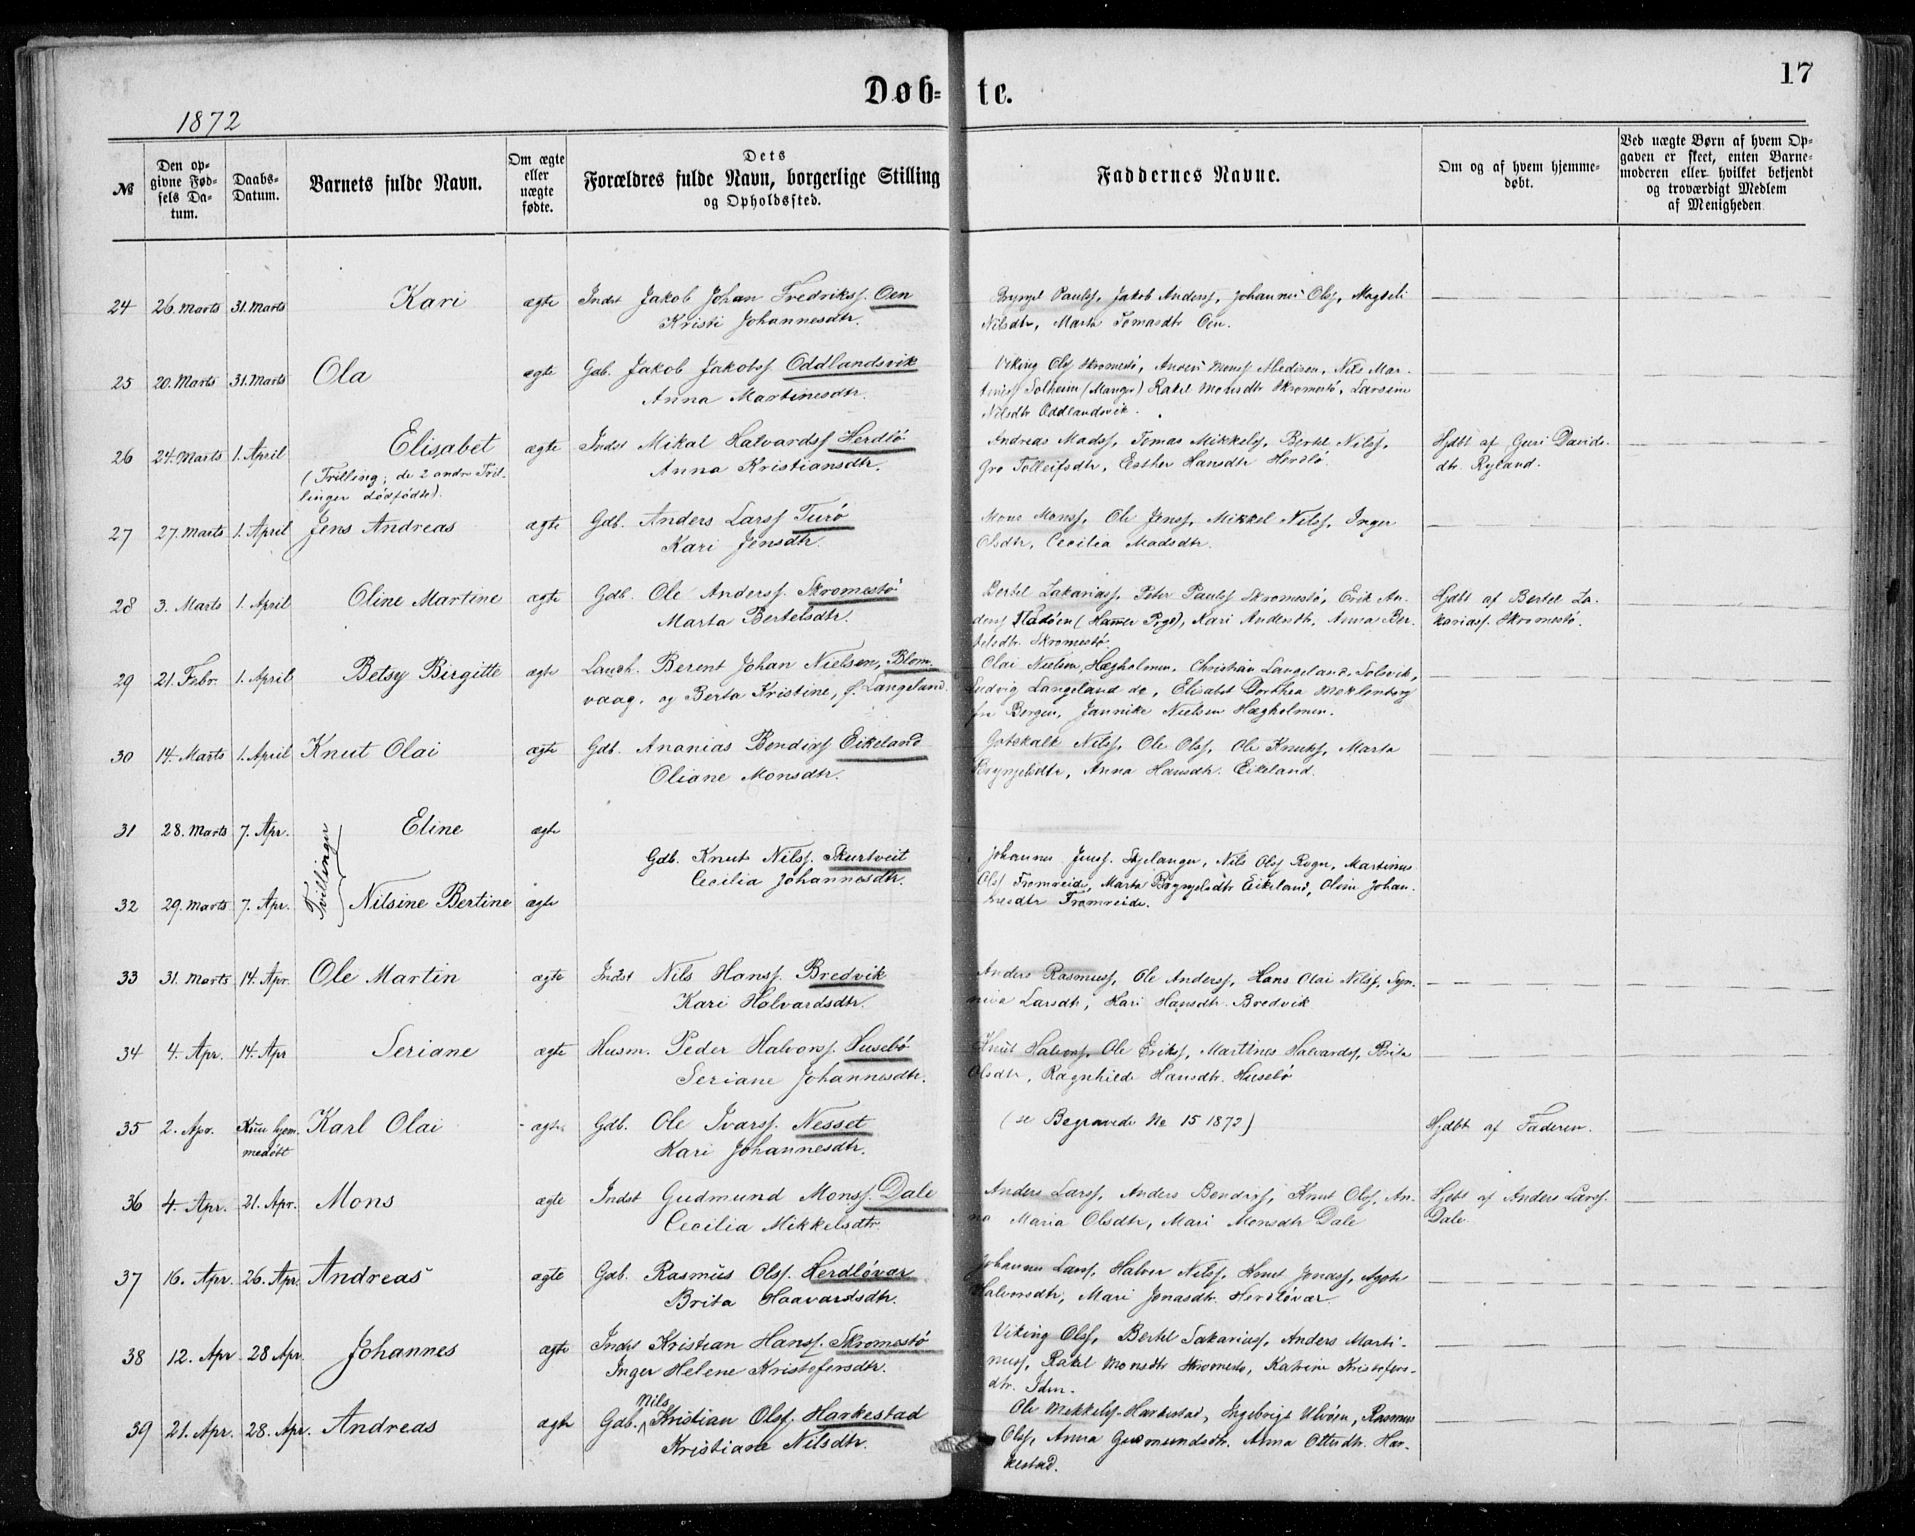 Døb=te.
17
1872
№
Den op-
givne Fød-
sels Da-
tum.
Daabs-
Datum.
Barnets fulde Navn.
Om ægte
eller
uægte
fødte.
Dets
Forældres fulde Navn, borgerlige Stilling
og Opholdssted.
Faddernes Navne.
Om og af hvem hjemme-
døbt.
Ved uægte Børn af hvem Op-
gaven er skeet, enten Barne-
moderen eller hvilket bekjendt
og troværdigt Medlem
af Menigheden
24 26. Marts 31. Marts Kari ægte Indst Jakob Johan Fredrikss. Oen
Kristi Johannesdtr.
Brynjel Paulss, Jakob Anderss, Johannes Olss, Magteli
Nilsdtr, Marta Tomasdtr Oen.
25 20. Marts 31. Marts Ola ægte Gdb. Jakob Jakobss. Oddlandsvik
Anna Martinesdtr.
Viking Olss Skromestø, Anders Monss Medisen, Nils Mar-
tiness Solheim (Manger) Rakel Monsdtr Skromestø, Larsine
Nilsdtr Oddlandsvik.
26 24. Marts 1. April Elisabet ægte Indst Mikal Halvardss Herdlø
(Trilling; de 2 andre Tril-
linger dødfødte).
Anna Kristiansdtr.
Andreas Madss, Tomas Mikkelss, Bertel Nilss,
Gro Tolleifsdtr, Esther Hansdtr Herdlø.
Hjdbt af Guri Davids-
dtr. Ryland.
27 27. Marts 1. April Jens Andreas ægte Gdb. Anders Larss Turø
Kari Jensdtr.
Mons Monss, Ole Jenss, Mikkel Nilss, Inger
Olsdtr, Cecilia Madsdtr.
28 3. Marts 1. April Oline Martine ægte Gdb. Ole Anderss. Skromestø
Marta Bertelsdtr.
Bertel Zakariass, Peter Paulss Skromestø, Erik An-
derss Fladøen (Hamer Pgd), Kari Andersdtr, Anna Ber-
telsdtr Skromestø.
Hjdbt af Bertel Za-
kariass. Skromestø.
29 21. Febr. 1. April Betsy Birgitte ægte Landh. Berent Johan Nielsen, Blom-
vaag, og Berta Kristine, f. Langeland.
Olai Nielsen Hægholmen, Christian Langeland, Solsvik,
Ludvig Langeland do, Elisabet Dorthea Meklenborg
fra Bergen, Jannike Nielsen Hægholmen.
30 14. Marts 1. April Knut Olai ægte Gdb. Ananias Bendixs Eikeland
Oliane Monsdtr.
Gotskalk Nilss, Ole Olss, Ole Knutss, Marta
Brynjelsdtr, Anna Hansdtr. Eikeland.
31 28. Marts 7. Apr. Eline ægte
Tvillinger
Gdb. Knut Nilss. Skurtveit
Cecilia Johannesdtr.
Johannes Jenss. Skjelanger, Nils Olss Rogn, Martinus
Olss Fromreide, Marta Brynjelsdtr Eikeland, Oline Johan-
nesdtr Fromreide.
32 29. Marts 7. Apr. Nilsine Bertine ægte
33 31. Marts 14. Apr. Ole Martin ægte Indst Nils Hanss. Bredvik
Kari Halvardsdtr.
Anders Rasmuss, Ole Anderss, Hans Olai Nilss, Syn-
niva Larsdtr, Kari Hansdtr. Bredvik
34 4. Apr. 14. Apr Seriane ægte Husm. Peder Halvorss. Husebø
Seriane Johannesdtr.
Knut Halvorss, Ole Erikss, Martines Halvardss, Brita
Olsdtr, Ragnhilde Hansdtr. Husebø
35 2. Apr. Kun hjem-
medøbt
Karl Olai ægte Gdb. Ole Ivarss. Nesset
Kari Johannesdtr.
(se Begravede № 15 1872)
Hjdbt af Faderen.
36 4. Apr. 21. Apr. Mons ægte Indst Gudmund Monss. Dale
Cecilia Mikkelsdtr.
Anders Larss, Anders Bendixs, Knut Olss, An-
na Maria Olsdtr, Mari Monsdtr Dale
Hjdbt af Anders Larss.
Dale.
37 16. Apr. 26. Apr. Andreas ægte Gdb. Rasmus Olss. Herdløvær
Brita Haavardsdtr.
Johannes Larss, Halvor Nilss, Knut Jonass, Agate
Halvorsdtr, Mari Jonasdtr. Herdløvær
38 12. Apr 28 Apr. Johannes ægte Indst Kristian Hanss. Skromestø
Inger Helene Kristofersdtr.
Viking Olss, Bertel Sakariass, Anders Marti-
nuss, Rakel Monsdtr Skromestø, Katrine Kristofers-
dtr. Idm.
39 21. Apr. 28. Apr. Andreas ægte Gdb. Nils Kristian Olss. Harkestad
Kristiane Nilsdtr.
Ole Mikkelss. Harkestad, Ingebrigt Ulvøen, Rasmus
Olss, Anna Gudmundsdtr. Anna Ottesdtr. Har-
kestad.